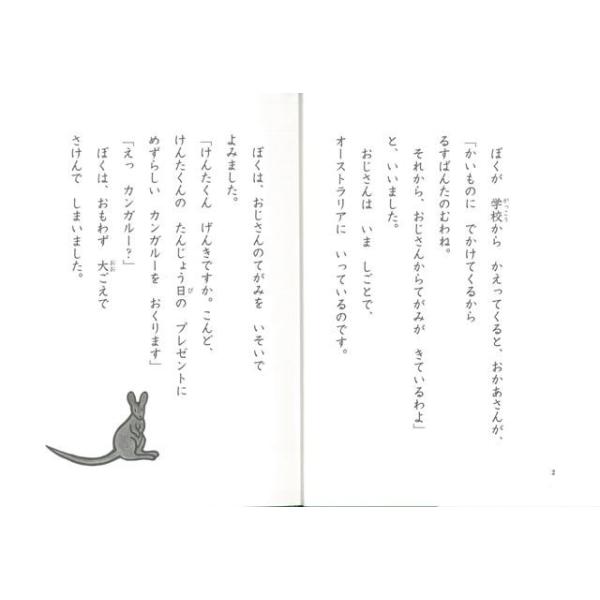 ぼくが 学校から かえってくると、おかあさんが、
がっこう
「かいものに でかけてくるから
るすばんたのむわね。
それから、おじさんからてがみが きているわよ」
と、いいました。
おじさんは いま しごとで、
オーストラリアに いっているのです。
2
ぼくは、おじさんのてがみを いそいで
よみました。
「けんたくん げんきですか。こんど、
けんたくんの たんじょう日の プレゼントに
び
めずらしい カンガルーを おくります」
「えっ カンガルー？」
ぼくは、おもわず 大ごえで
おお
さけんで しまいました。